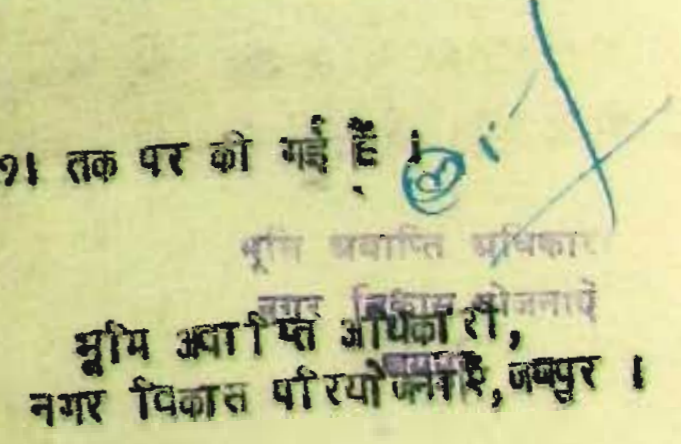 91 तक पर की गई है ।
भूमि अवाप्ति अधिकारी
नगर विकास योजनाएं
भूमि अवाप्ति अधिकारी,
नगर विकास परियोजनाएं, जयपुर ।